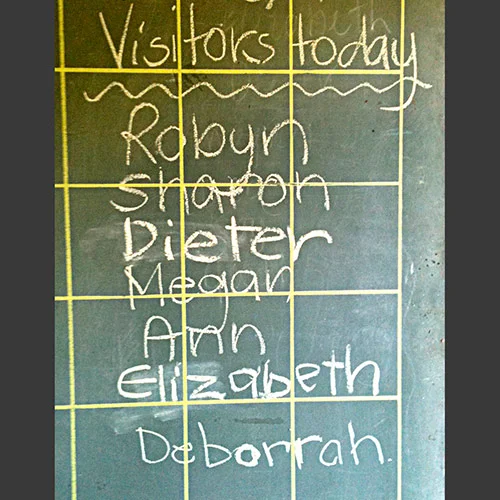 Visitors today
Robyn
Sharon
Dieter
Megan
Ann
Elizabeth
Deborrah.